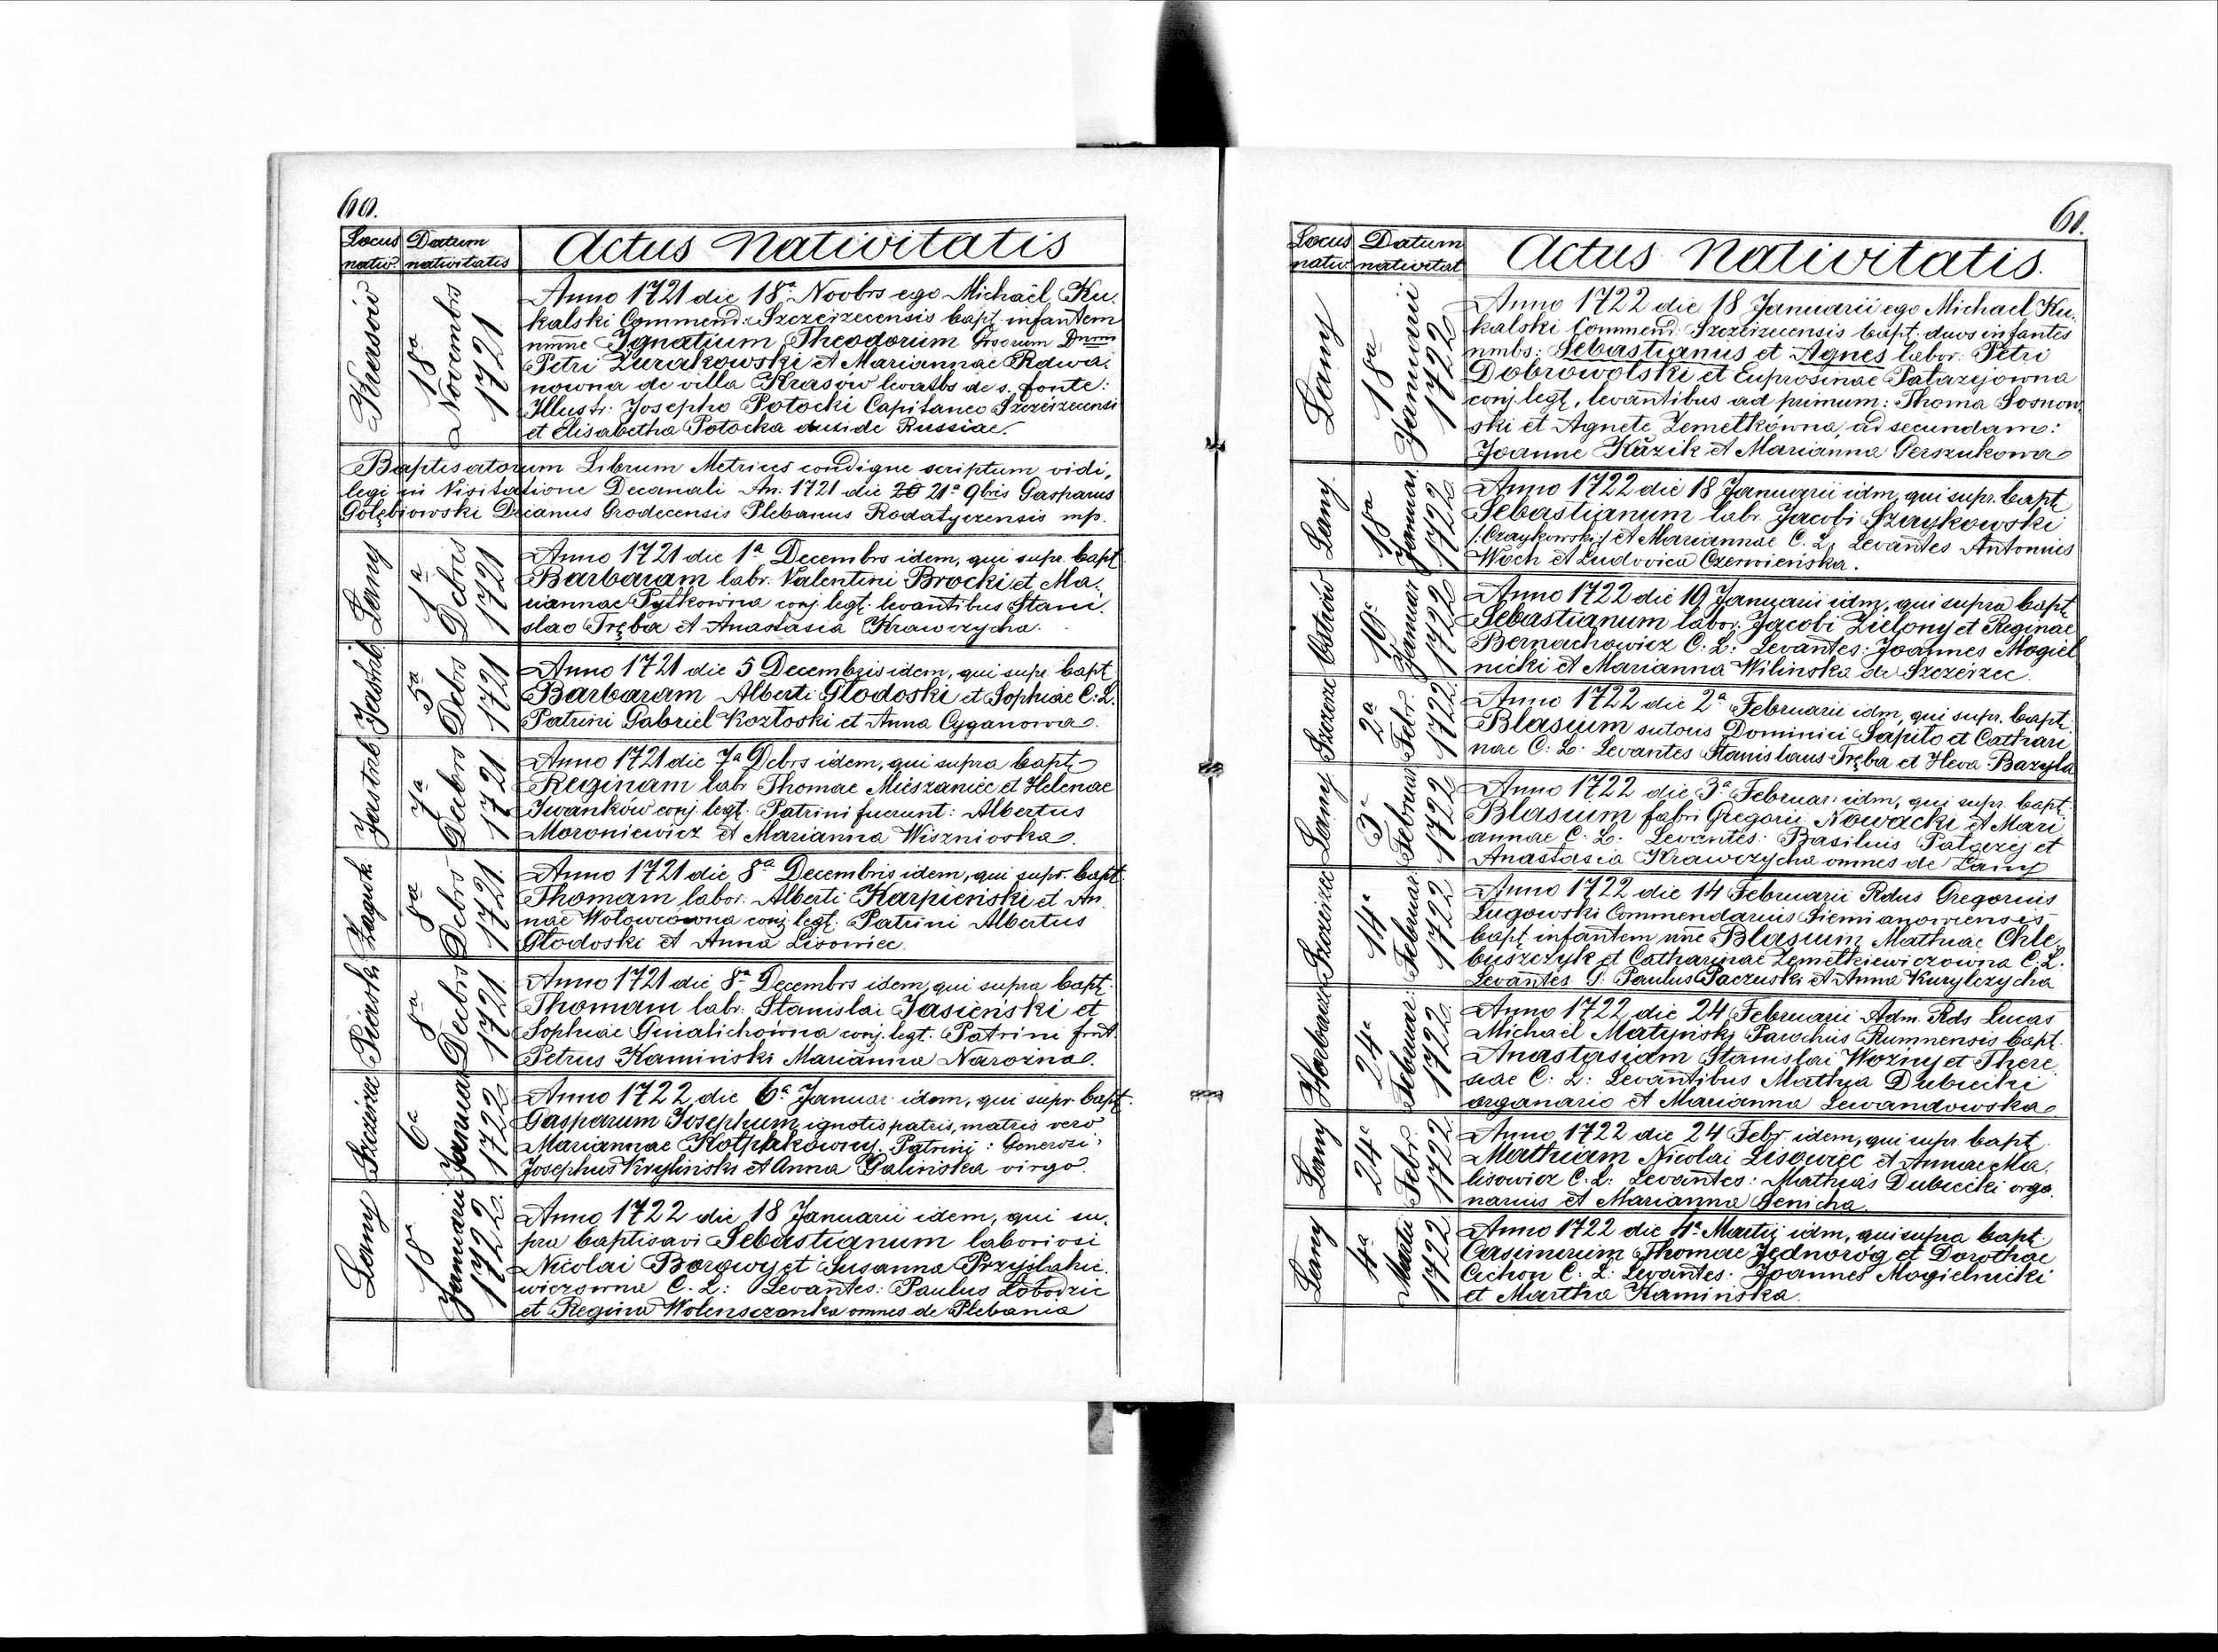 60.
Locus nativ.
Datum nativitatis
Actus Nativitatis
Krasów
18a Novembrs 1721
Anno 1721 die 18a Novbrs ego Michaël Ku-
kalski Commend: Szczerzecensis bapt. infantem
nmne Ignatium Theodorum Gsorum Dnrm
Petri Żurakowski et Mariannae Rdwa-
nowna de villa Krasów levatbs de s. fonte:
Illustr: Josepho Potocki Capitaneo Szczerzecensi
et Elisabetha Potocka Russiae.
Baptisatorum Librum Metrices condigne scriptum vidi,
legi in Visitatione Decanali An. 1721 die 20 21a 9bris Gasparus
Gołębiowski Decanus Grodecensis Plebanus Rodatyczensis mp.
Łany
1a Debris 1721
Anno 1721 die 1a Decembrs idem, qui supr. bapt
Barbaram labr. Valentini Brocki et Ma-
riannae Pytkowna conj. legt. levantibus Stani-
slao Tręba et Anastasia Krawczycha.
Jastrb
5a Debrs 1721
Anno 1721 die 5 Decembris idem, qui supr. bapt
Barbaram Alberti Głodoski et Sophiae C: L.
Patrini Gabriel Kozłoski et Anna Cyganowa.
Jastrb
7a Debrs 1721
Anno 1721 die 7a Debrs idem, qui supra bapt
Reginam labr Thomae Mieszaniec et Helenae
Iwanków conj. legt. Patrini fuerunt: Albertus
Moroniewicz et Marianna Wisznioska.
Zagurk
8a Debrs 1721
Anno 1721 die 8a Decembris idem, qui supr. bapt
Thomam labor. Alberti Karpienski et An-
nae Wołowcowna conj. legt. Patrini Albertus
Głodoski et Anna Lisowiec.
Piaski
8a Decbrs 1721
Anno 1721 die 8a Decembrs idem, qui supra bapt.
Thomam labr. Stanislai Jasieński et
Sophiae Gnialichówna conj. legt. Patrini frnt.
Petrus Kaminski Marianna Narozna.
Szczerze
6a Januar 1722
Anno 1722 die 6a Januar idem, qui supr. bapt.
Gasparum Josephum ignotis patris, matris vero
Mariannae Patrinj: Generosi
Josephus Kryliński et Anna Galińska virgo.
Łany
18a Januarii 1722
Anno 1722 die 18 Januarii idem, qui su-
pra baptisavi Sebastianum laboriosi
Nicolai Borowy et Susanna Przysbakie-
wiczowna C. L: Levantes: Paulus Łobodzic
et Regina Wolensczanka omnes de Plebania
61.
Locus nativ
Datum nativitat
Actus Nativitatis.
Łany
18a Januarii 1722
Anno 1722 die 18 Januarii ego Michael Ku-
kalski Commend. Szczerzecensis bapt. duos infantes
nmbs: Sebastianus et Agnes labor. Petri
Dobrowolski et Euprosinae Patarejowna
conj. legt, levantibus ad primum: Thoma Sosnow-
ski et Agnete Zemełkowna, ad secundam:
Joanne Kazik et Marianna Gerszukowa
Łany
18a Januar. 1722
Anno 1722 die 18 Januarii idm, qui supr. bapt
Sebastianum labr. Jacobi Szaykowski
/:Czaykowski:/ et Mariannae C. L. Levantes Antonius
Woch et Ludovica Czerwieńska.
Ostrów
19a Januar 1722
Anno 1722 die 19 Januarii idm, qui supra bapt
Sebastianum labor. Jacobi Zielony et Reginae
Bernachowicz C: L: Levantes: Joannes Mogiel
nicki et Marianna Wilinska de Szczerzec.
Szczerze
2a Febr. 1722
Anno 1722 die 2a Februarii idm, qui supr. bapt.
Blasium sutoris Dominici Sapito et Cathari
nae C: L: Levantes Stanislaus Tręba et Heva Bazyla
Łany
3a Februar 1722
Anno 1722 die 3a Februar. idm, qui supr. bapt.
Blasium fabri Gregorii Nowacki et Mari
annae C: L: Levantes: Basilius Patarej et
Anastasia Krawczycha omnes de Łany
Szczerze
14a Februar 1722
Anno 1722 die 14 Februarii Rdus Gregorius
Ługowski Commendarius Siemianowiensis
bapt infantem nne Blasium Mathiae Chle-
buszczyk et Catharinae Zemełkiewiczowna C. L.
Levantes G. Paulus Paczuski et Anna Kurylczycha
Horbacz
24a Februar. 1722
Anno 1722 die 24 Februarii Adm. Rds Lucas
Michael Matyński Parochus Rumnensis bapt.
Anastasiam Stanislai Wozny et There-
siae C: L: Levantibus Mathia Dubiecki
organario et Marianna Lewandowska
Łany
24a Febr. 1722
Anno 1722 die 24 Febr. idem, qui supr. bapt
Mathiam Nicolai Lisowiec et Annae Ma-
lisowicz C: L: Levantes: Mathias Dubiecki orga-
narius et Marianna Senicha
Łany
4a Martii 1722
Anno 1722 die 4a Martij idm, qui supra bapt
Casimirum Thomae Jednoróg et Dorothae
Cichon C: L: Levantes: Joannes Mogielnicki
et Martha Kaminska.